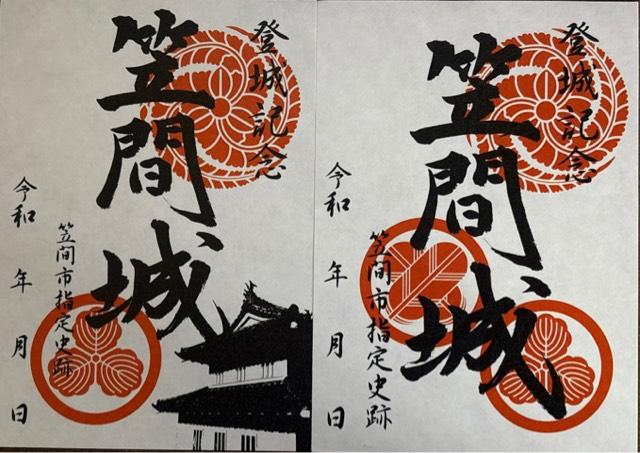 登城記念
笠間城
笠間市指定史跡
令和 年 月 日
登城記念
笠間城
笠間市指定史跡
令和 年 月 日